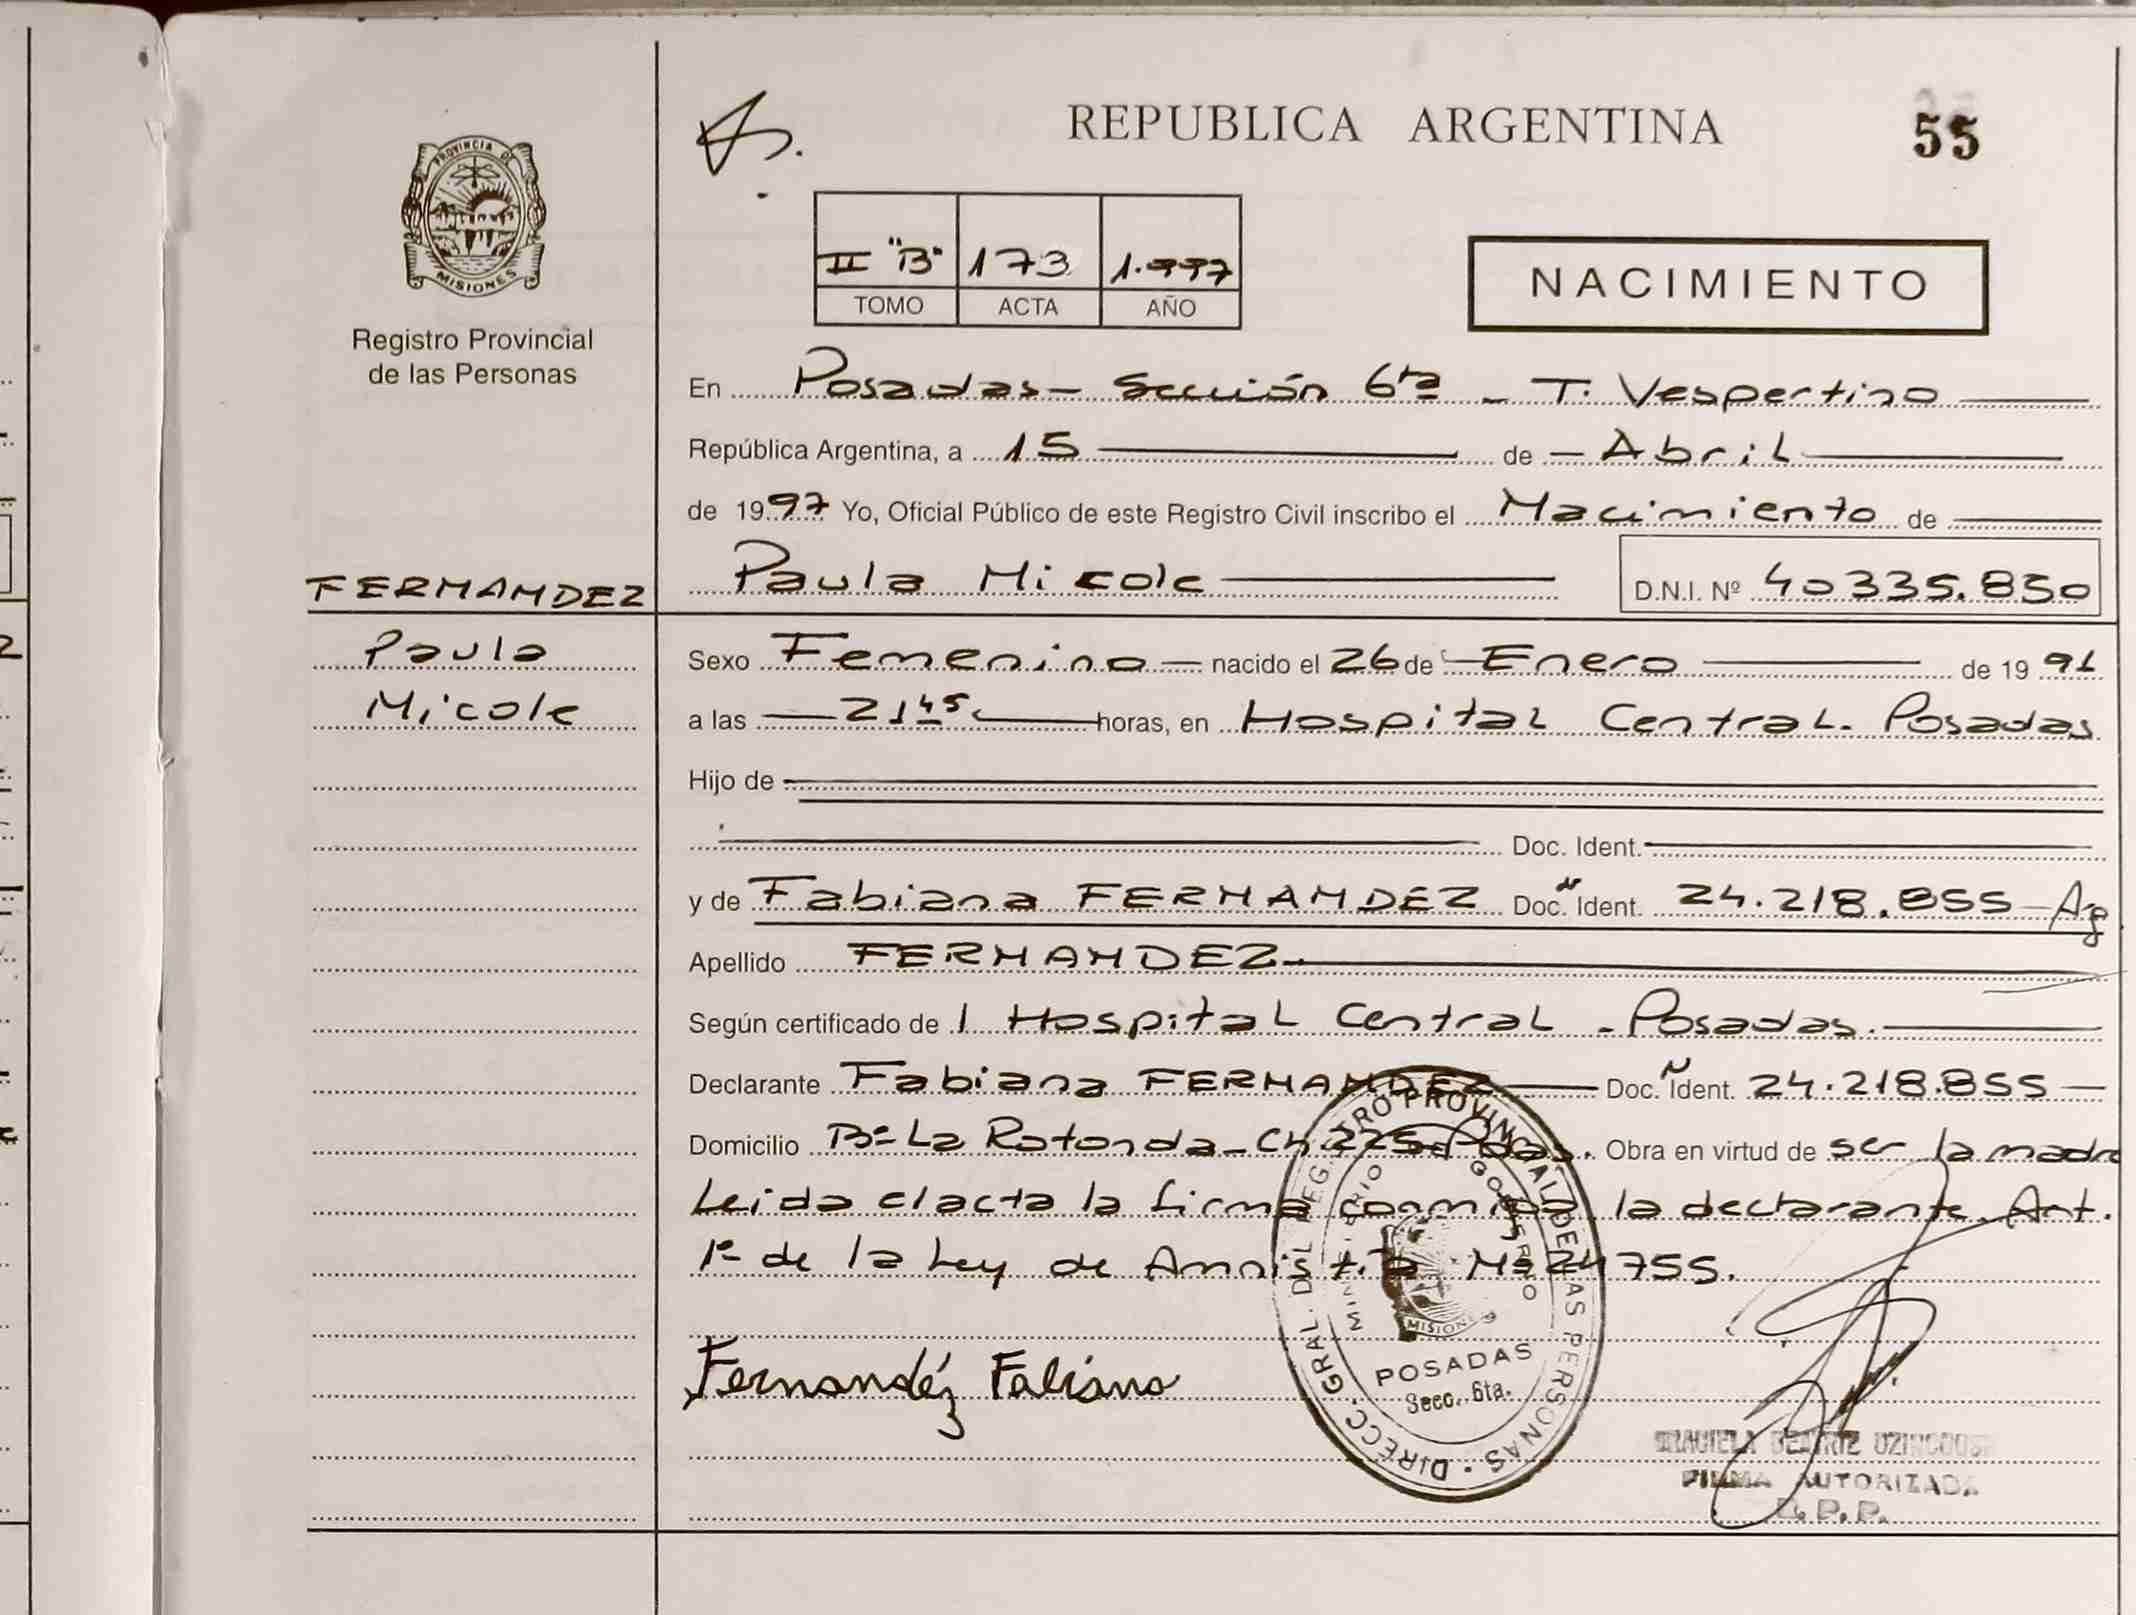 REPUBLICA ARGENTINA
55
PROVINCIA DE
MISIONES
Registro Provincial
de las Personas
II "B" 173 1.997
TOMO ACTA AÑO
NACIMIENTO
En Posadas - Sección 6ta - T. Vespertino
República Argentina, a 15 de Abril
de 1997 Yo, Oficial Público de este Registro Civil inscribo el Nacimiento de
Paula Nicole D.N.I. Nº 40335.850
FERNANDEZ
Paula
Nicole
Sexo Femenino nacido el 26 de Enero de 19 91
a las 21 45 horas, en Hospital Central. Posadas
Hijo de
Doc. Ident.
y de Fabiana FERNANDEZ Doc. Ident. 24.218.855 - Ag
Apellido FERNANDEZ
Según certificado del Hospital Central - Posadas.
Declarante Fabiana FERNANDEZ Doc. Ident. 24.218.855
Domicilio Bº La Rotonda - Ch 225 - Pdas. Obra en virtud de ser la madre
Leida el acta la firma conmigo la declarante. Art.
1º de la Ley de Amnistía Nº 24755.
Fernandéz Fabiana
DIRECC. GRAL. DEL REGISTRO PROVINCIAL DE LAS PERSONAS
MINISTERIO GOBIERNO
MISIONES
POSADAS
Secc. 6ta.
GRACIELA BEATRIZ
FIRMA AUTORIZADA
R. P. P.